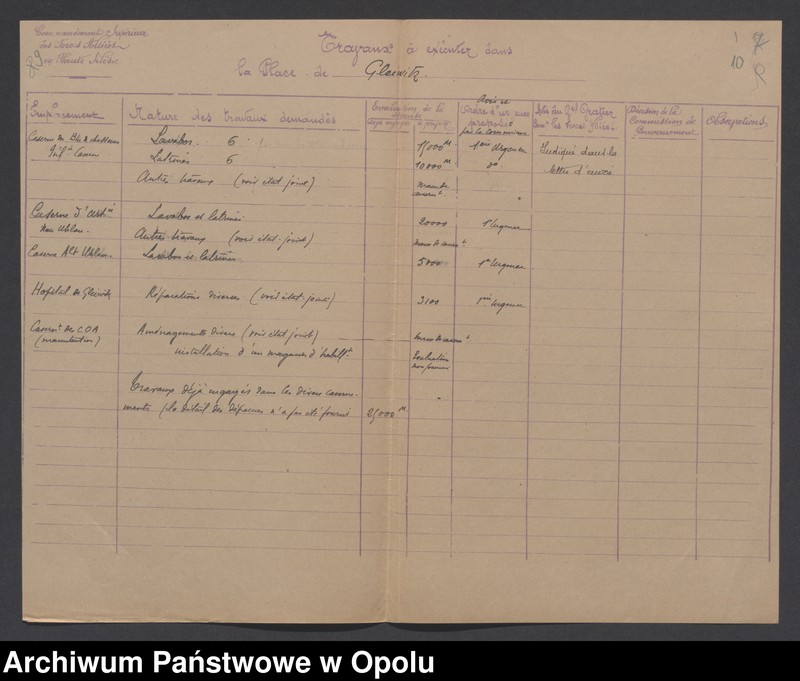 Commandement Supérieur
des Forces Alliées
en Haute Silésie
89
1
10
Travaux à exécuter dans
la Place de Gleiwitz
Emplacement
Nature des travaux demandés
Evaluation de la
dépense
déjà engagée
à prévoir
Avis et
Ordre d'urgence
proposé
par la commission
Avis du Gal Gratier
Comt les Forces Alliées
Décision de la
Commission de
Gouvernement
Observations
Caserne du Bon de chasseurs
Lavabos 6
15000 M
1ère Urgence
Indiqué dans la
Latrines 6
10000 M
do
lettre d'envoi
Autres travaux (voir état joint)
Caserne d'Artie
Lavabos et latrines
20000
1e Urgence
Neu Uhlan
Autres travaux (voir état joint)
Caserne Alt Uhlan
Lavabos et latrines
5000
1e Urgence
Hopital de Gleiwitz
Réparations diverses (voir état joint)
3100
1ère Urgence
Casernt de COA
Aménagements divers (voir état joint)
(manutention)
installation d'un magasin d'habillt
Evaluation
non fournie
Travaux déjà engagés dans les divers caserne-
ments (le détail des dépenses n'a pas été fourni
25000 M
Archiwum Państwowe w Opolu